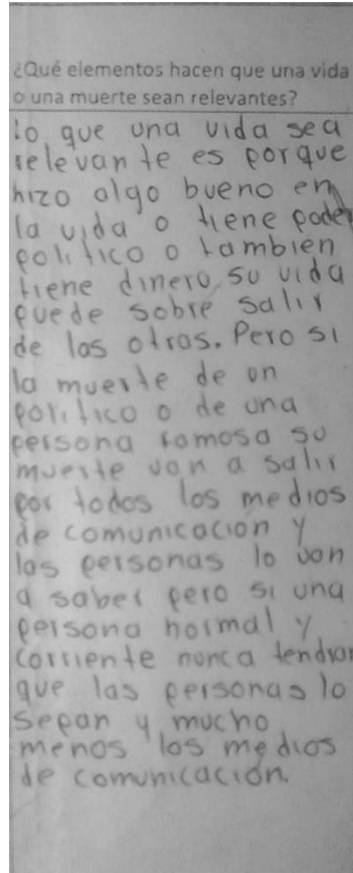 ¿Qué elementos hacen que una vida
o una muerte sean relevantes?
lo que una vida sea
relevante es porque
hizo algo bueno en
la vida o tiene poder
politico o tambien
tiene dinero su vida
puede sobre salir
de las otras. Pero si
la muerte de un
politico o de una
persona famosa su
muerte van a salir
por todos los medios
de comunicacion y
las personas lo van
a saber pero si una
persona normal y
corriente nunca tendran
que las personas lo
sepan y mucho
menos los medios
de comunicación.